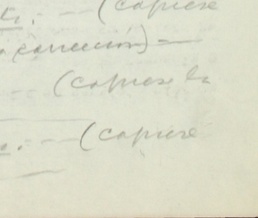 (copiese
corrección) —
(copiese la
(copiese